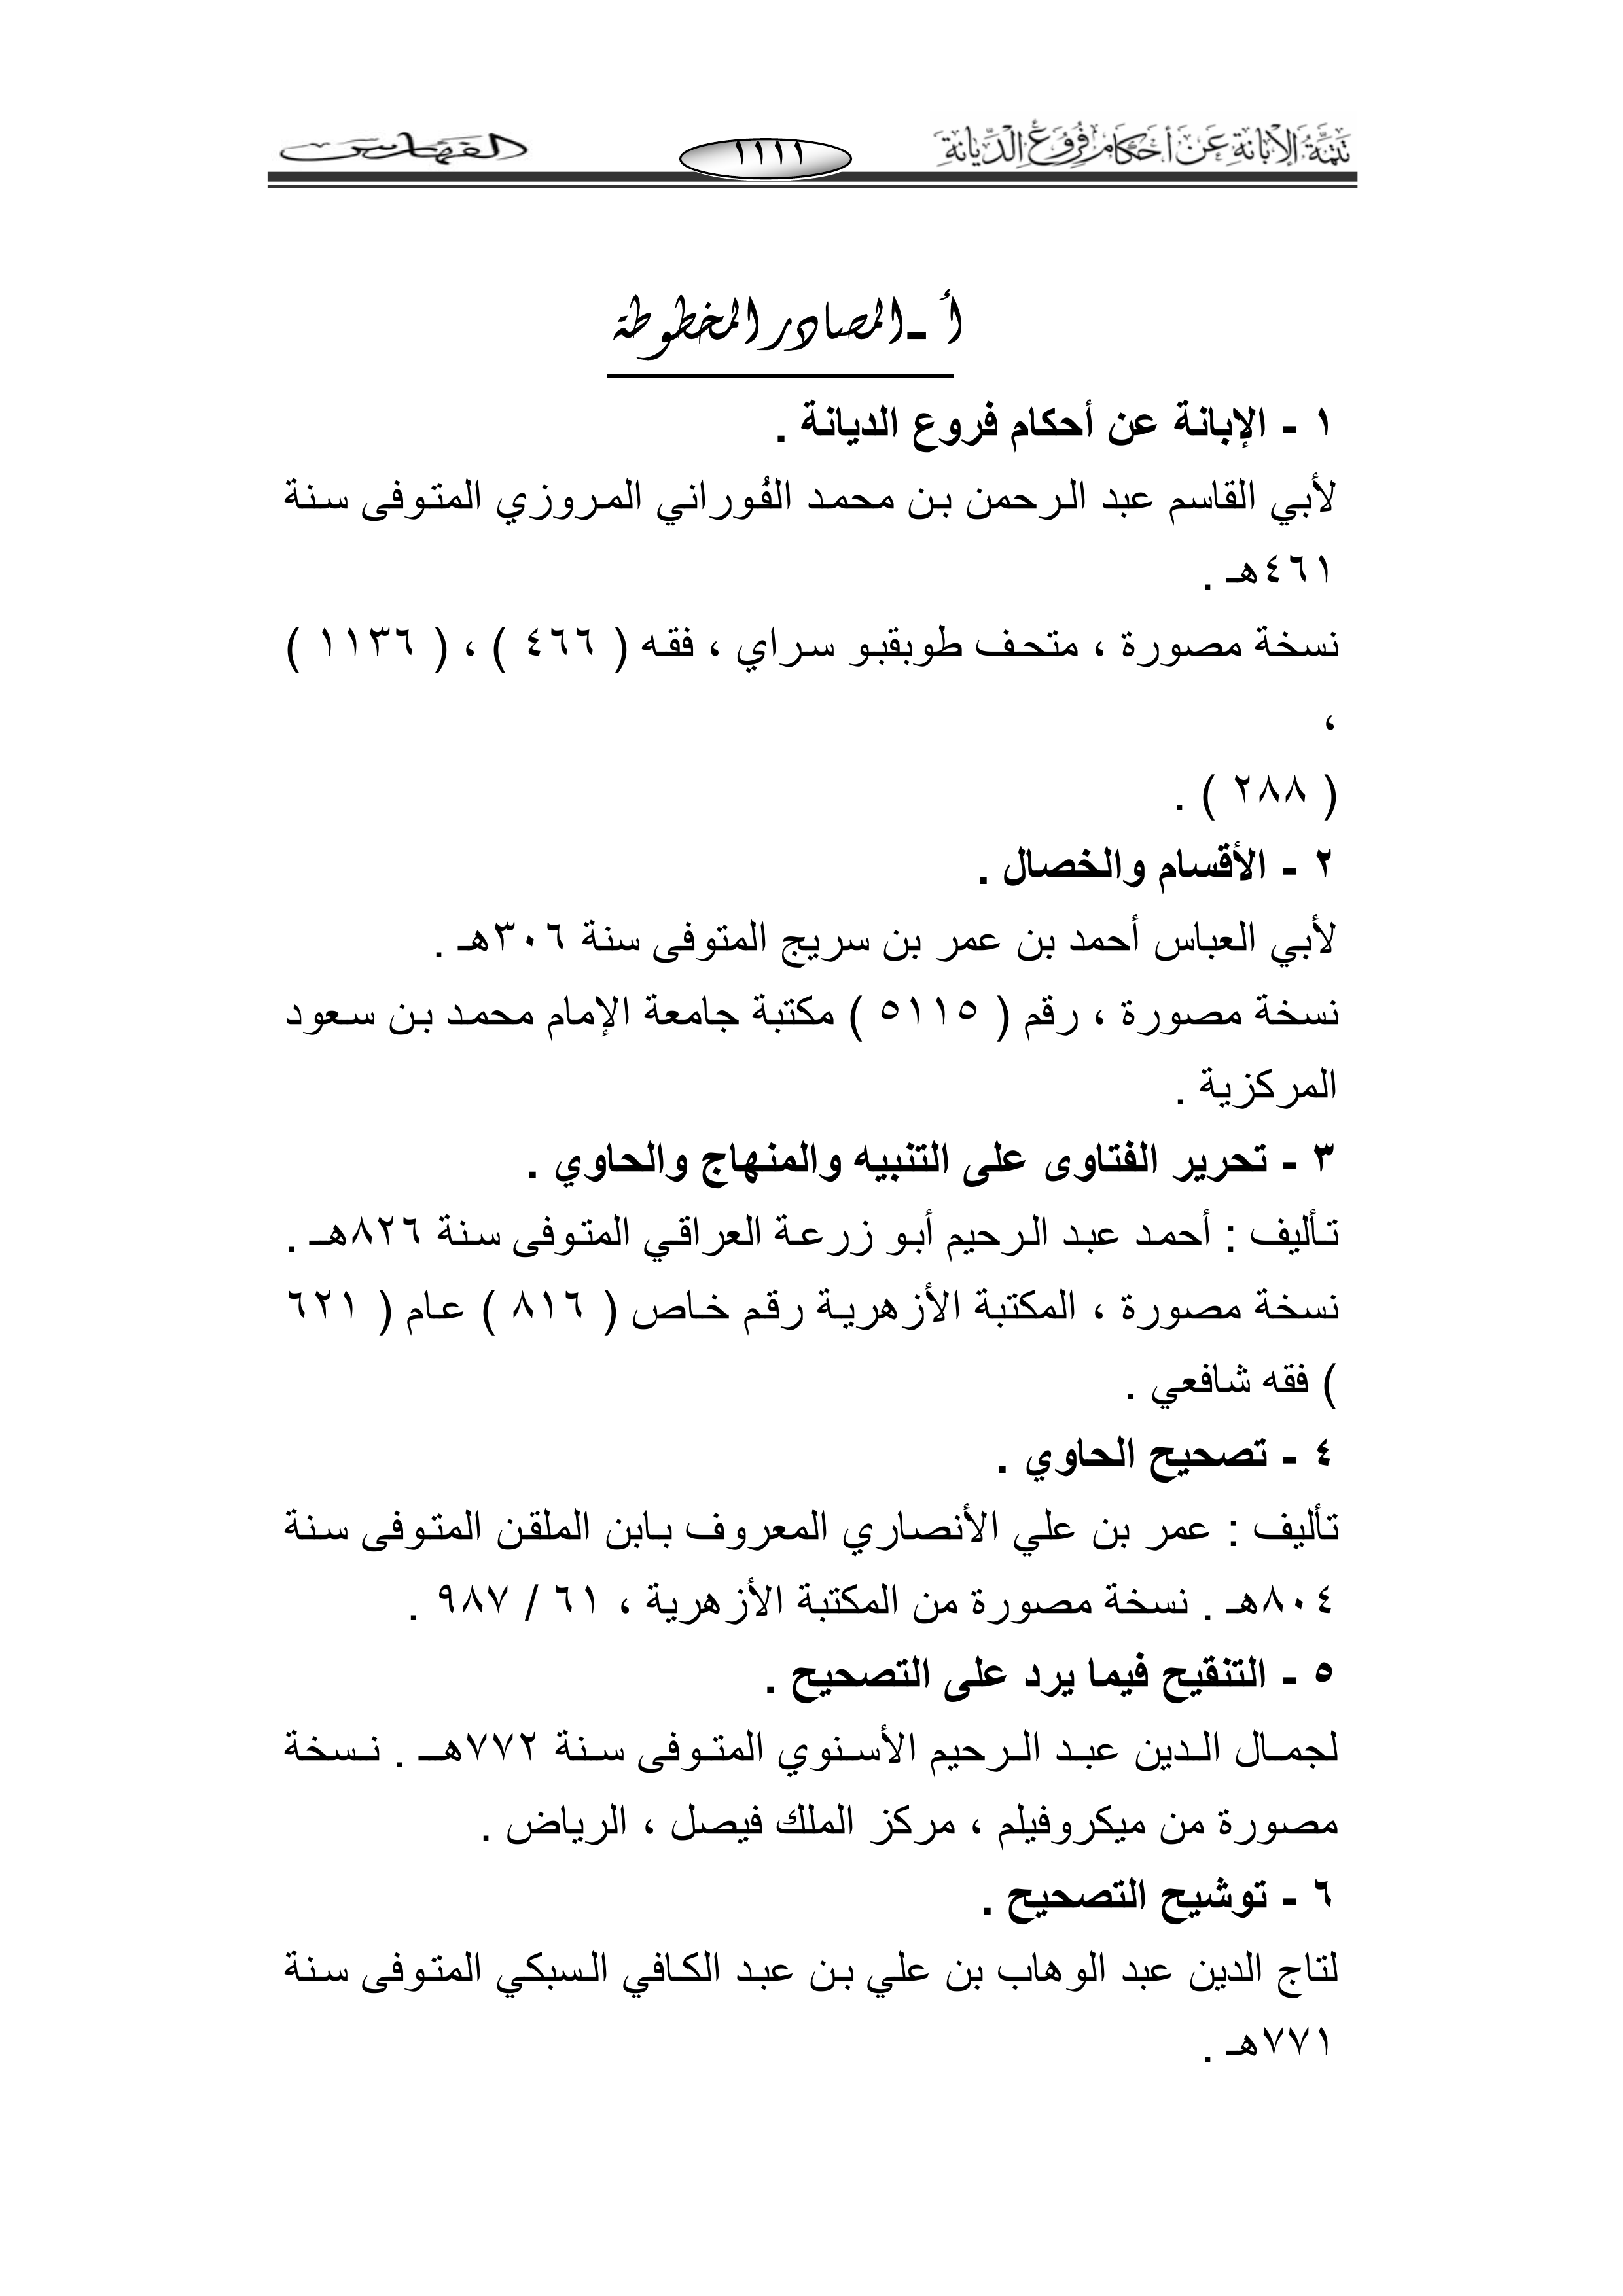 تَتِمَّةُ الإِبَانَةِ عَنْ أَحْكَامِ فُرُوعِ الدِّيَانَةِ ١١١١ الفهارس
أ ـ المصادر المخطوطة
١ - الإبانة عن أحكام فروع الديانة .
لأبي القاسم عبد الرحمن بن محمد الفُوراني المروزي المتوفى سنة
٤٦١هـ .
نسخة مصورة ، متحف طوبقبو سراي ، فقه ( ٤٦٦ ) ، ( ١١٣٦ )
،
( ٢٨٨ ) .
٢ - الأقسام والخصال .
لأبي العباس أحمد بن عمر بن سريج المتوفى سنة ٣٠٦هـ .
نسخة مصورة ، رقم ( ٥١١٥ ) مكتبة جامعة الإمام محمد بن سعود
المركزية .
٣ - تحرير الفتاوى على التنبيه والمنهاج والحاوي .
تأليف : أحمد عبد الرحيم أبو زرعة العراقي المتوفى سنة ٨٢٦هـ .
نسخة مصورة ، المكتبة الأزهرية رقم خاص ( ٨١٦ ) عام ( ٦٢١
) فقه شافعي .
٤ - تصحيح الحاوي .
تأليف : عمر بن علي الأنصاري المعروف بابن الملقن المتوفى سنة
٨٠٤هـ . نسخة مصورة من المكتبة الأزهرية ، ٦١ / ٩٨٧ .
٥ - التنقيح فيما يرد على التصحيح .
لجمال الدين عبد الرحيم الأسنوي المتوفى سنة ٧٧٢هـ . نسخة
مصورة من ميكروفيلم ، مركز الملك فيصل ، الرياض .
٦ - توشيح التصحيح .
لتاج الدين عبد الوهاب بن علي بن عبد الكافي السبكي المتوفى سنة
٧٧١هـ .